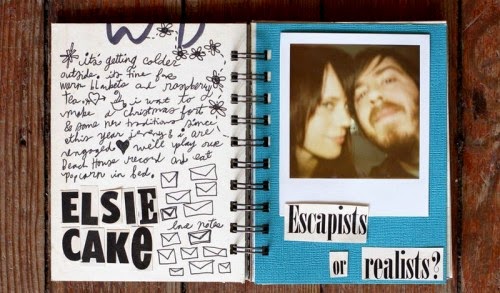 it's getting colder
outside, it's time for
warm blankets and raspberry
tea. i want to
make a christmas fort
& some new traditions since
this year jeremy & i are
engaged we'll play our
Beach House record and eat
popcorn in bed.
ELSIE
CAKE
love notes
Escapists
or realists?